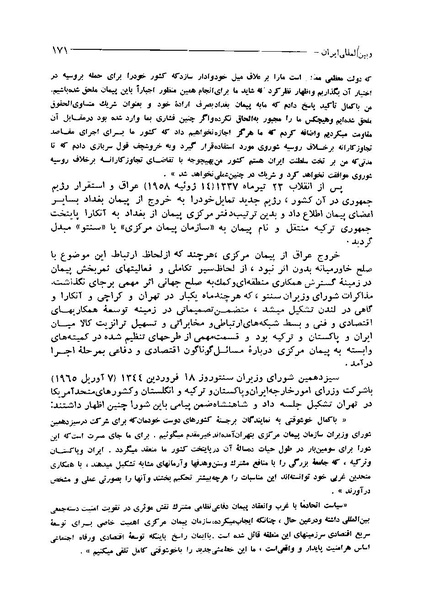 وبین‌المللی ایران - ۱۷۱
که دولت معظمی مدد: است مارا برخلاف میل خودوادار سازدکه کشور خودرا برای حمله بروسیه در
اختیار آن بگذاریم واظهار نظرکردکه شاید ما برای‌انجام همین منظور اجباراً باین پیمان ملحق شده‌باشیم.
من باکمال تأکید پاسخ دادم که مابه پیمان بغدادبصرف ارادهٔ خود و بعنوان شریک متساوی‌الحقوق
ملحق شده‌ایم وهیچکس ما را مجبور به‌الحاق نکرده‌واگر چنین فشاری بما وارد شده بود درمقابل آن
مقاومت میکردیم واضافه کردم که ما هرگز اجازه‌نخواهیم داد که کشور ما برای اجرای مقاصد
تجاوزکارانه برخلاف روسیه شوروی مورد استفاده‌قرار گیرد وبه خروشچف قول سربازی دادم که تا
مدتی‌که من بر تخت سلطنت ایران هستم کشور من‌بهیچوجه با تقاضای تجاوزکارانه برخلاف روسیه
شوروی موافقت نخواهد کرد و شریک در چنین‌عملی نخواهد شد. »
پس از انقلاب ۲۳ تیرماه ۱۳۳۷ (۱۴ ژوئیه ۱۹۵۸) عراق و استقرار رژیم
جمهوری در آن کشور، رژیم جدید تمایل‌خودرا به خروج از پیمان بغداد بسایر
اعضای پیمان اطلاع داد و بدین ترتیب‌دفتر مرکزی پیمان از بغداد به آنکارا پایتخت
جمهوری ترکیه منتقل و نام پیمان به «سازمان پیمان مرکزی» یا «سنتو» مبدل
گردید.
خروج عراق از پیمان مرکزی، هرچند که ازلحاظ ارتباط این موضوع با
صلح خاورمیانه بدون اثر نبود، از لحاظ‌سیر تکاملی و فعالیتهای ثمربخش پیمان
در زمینهٔ گسترش همکاری منطقه‌ای‌وکمک‌به صلح جهانی اثر مهمی برجای نگذاشت.
مذاکرات شورای وزیران سنتو، که هرچندماه یکبار در تهران و کراچی و آنکارا و
گاهی در لندن تشکیل میشد، متضمن‌تصمیماتی در زمینه توسعهٔ همکاریهای
اقتصادی و فنی و بسط شبکه‌های‌ارتباطی‌و مخابراتی و تسهیل ترانزیت کالا میان
ایران و پاکستان و ترکیه بود و قسمت‌مهمی از طرحهای تنظیم شده در کمیته‌های
وابسته به پیمان مرکزی دربارهٔ مسائل‌گوناگون اقتصادی و دفاعی بمرحلهٔ اجرا
درآمد.
سیزدهمین شورای وزیران سنتوروز ۱۸ فروردین ۱۳۴۴ (۷ آوریل ۱۹۶۵)
باشرکت وزرای امورخارجه‌ایران‌وپاکستان‌و ترکیه و انگلستان وکشورهای‌متحدآمریکا
در تهران تشکیل جلسه داد و شاهنشاه‌ضمن پیامی باین شورا چنین اظهار داشتند:
«باکمال خوشوقتی به نمایندگان برجستهٔ کشورهای دوست خودمان‌که برای شرکت درسیزدهمین
شورای وزیران سازمان پیمان مرکزی بتهران‌آمده‌اندخیرمقدم میگوئیم. برای ما جای مسرت است‌که این
شورا برای سومین‌بار در طول حیات ده‌سالهٔ آن درپایتخت کشور ما منعقد میگردد. ایران وپاکستان
وترکیه، که جامعهٔ بزرگی را با منافع مشترک وسنن‌وهدفها وآرمانهای مشابه تشکیل میدهند، با همکاری
هم‌پیمانان غربی خود توانسته‌اند، این مناسبات را هرچه‌بیشتر تحکیم بخشند وآنها را بصورتی عملی و مشخص
درآورند »
«سیاست اتحادما با غرب وانعقاد پیمان دفاعی‌نظامی مشترک نقش موثری در تقویت امنیت دسته‌جمعی
بین‌المللی داشته ودرعین حال، چنانکه ایجاب‌میکرده،سازمان پیمان مرکزی اهمیت خاصی برای توسعهٔ
سریع اقتصادی سرزمینهای این منطقه قائل شده است. باایمان راسخ باینکه توسعهٔ اقتصادی ورفاه اجتماعی
اساس هرامنیت پایدار و واقعی‌است، ما این خط‌مشی‌جدید را باخوشوقتی کامل تلقی میکنیم »